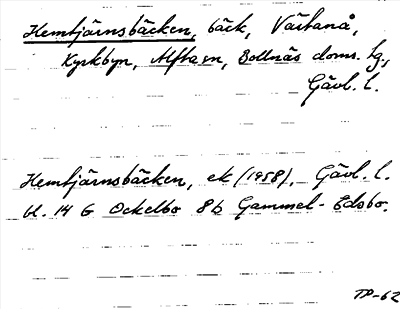 Hemtjärnsbäcken, bäck, Västanå,
Kyrkbyn, Alfta sn, Bollnäs doms. hg,
Gävl. l.
Hemtjärnsbäcken, ek (1958). Gävl. l.
bl. 14 G Ockelbo 8b Gammel-Edsbo.
TP-62